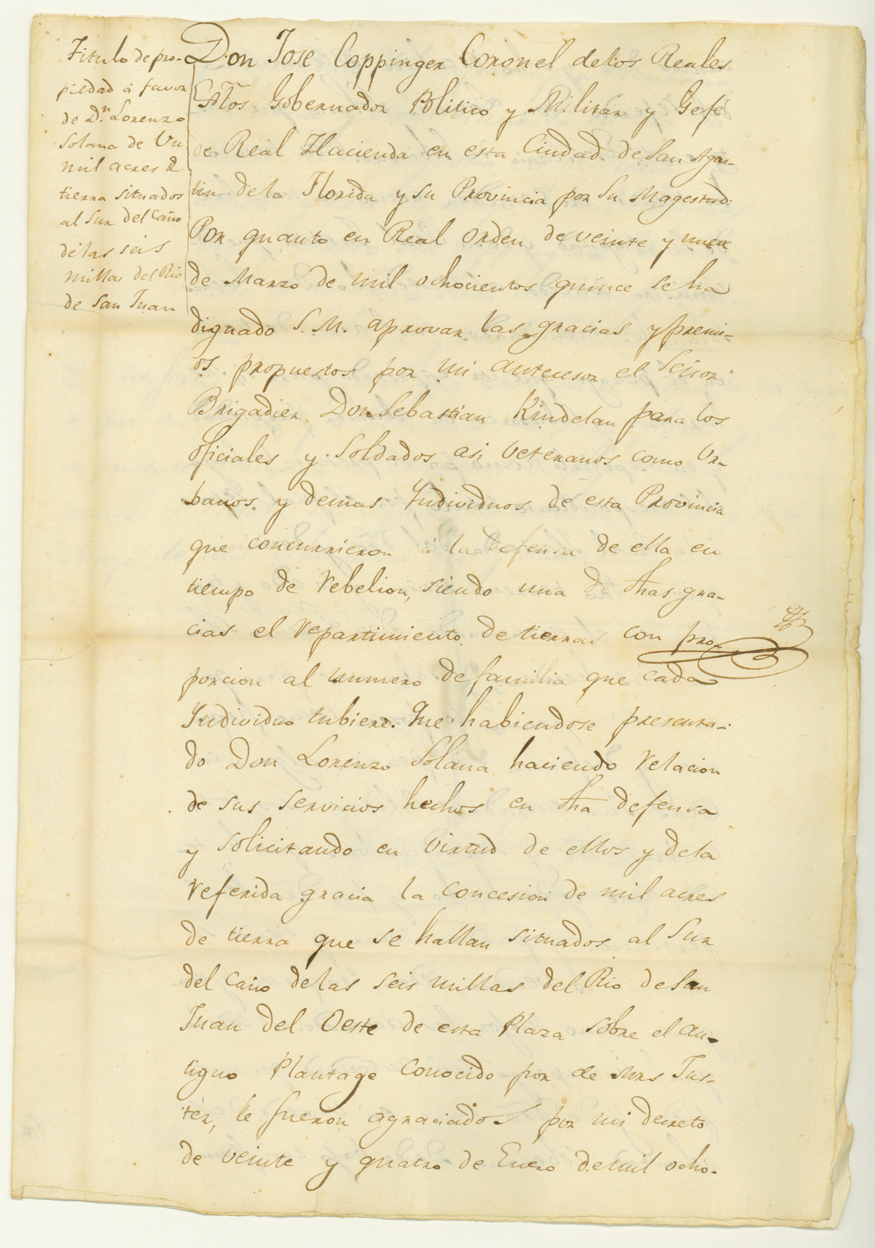 Titulo de pro-
piedad á favor
de Dn. Lorenzo
Solana de Un
mil acres de
tierra situados
al Sur del Caño
de las seis
millas del Rio
de San Juan
Don Jose Coppinger Coronel de los Reales
Extos Gobernador Politico y Militar y Gefe
de Real Hacienda en esta Ciudad de San Agus-
tin de la Florida y su Provincia por Su Magestad.
Por quanto en Real orden de veinte y nueve
de Marzo de mil ochocientos quince se ha
dignado S. M. aprovar las gracias y premi-
os propuestos por mi antecesor el Señor
Brigadier Don Sebastian Kindelan para los
oficiales y Soldados asi Veteranos como Ur-
banos y demas Individuos de esta Provincia
que concurrieron á la defensa de ella en
tiempo de rebelion, siendo una de dhas gra-
cias el repartimiento de tierras con pro-
porcion al numero de familia que cada
Individuo tubiere. Que habiendose presenta-
do Don Lorenzo Solana haciendo relacion
de sus servicios hechos en dha defensa
y solicitando en virtud de ellos y dela
referida gracia la concesion de mil acres
de tierra que se hallan situados al Sur
del Caño de las seis millas del Rio de San
Juan del Oeste de esta Plaza sobre el an-
tiguo Plantage conocido por de Mrs Fus-
ter, le fueron agraciados por mi decreto
de veinte y quatro de Enero de mil ocho-